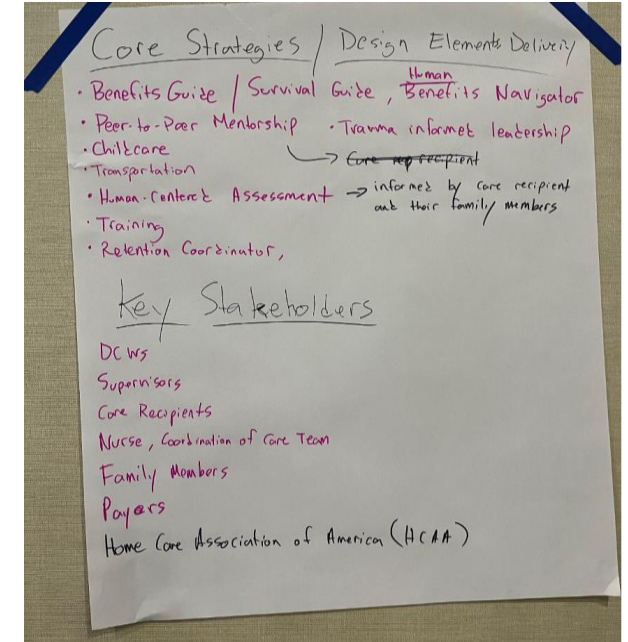 Core Strategies / Design Elements Delivery
• Benefits Guide / Survival Guide, Human Benefits Navigator
• Peer-to-Peer Mentorship • Trauma informed leadership
• Childcare
• Transportation
• Human-Centered Assessment → informed by care recipient
and their family members
• Training
• Retention Coordinator,
Key Stakeholders
DCWs
Supervisors
Care Recipients
Nurse, Coordination of Care Team
Family Members
Payers
Home Care Association of America (HCAA)